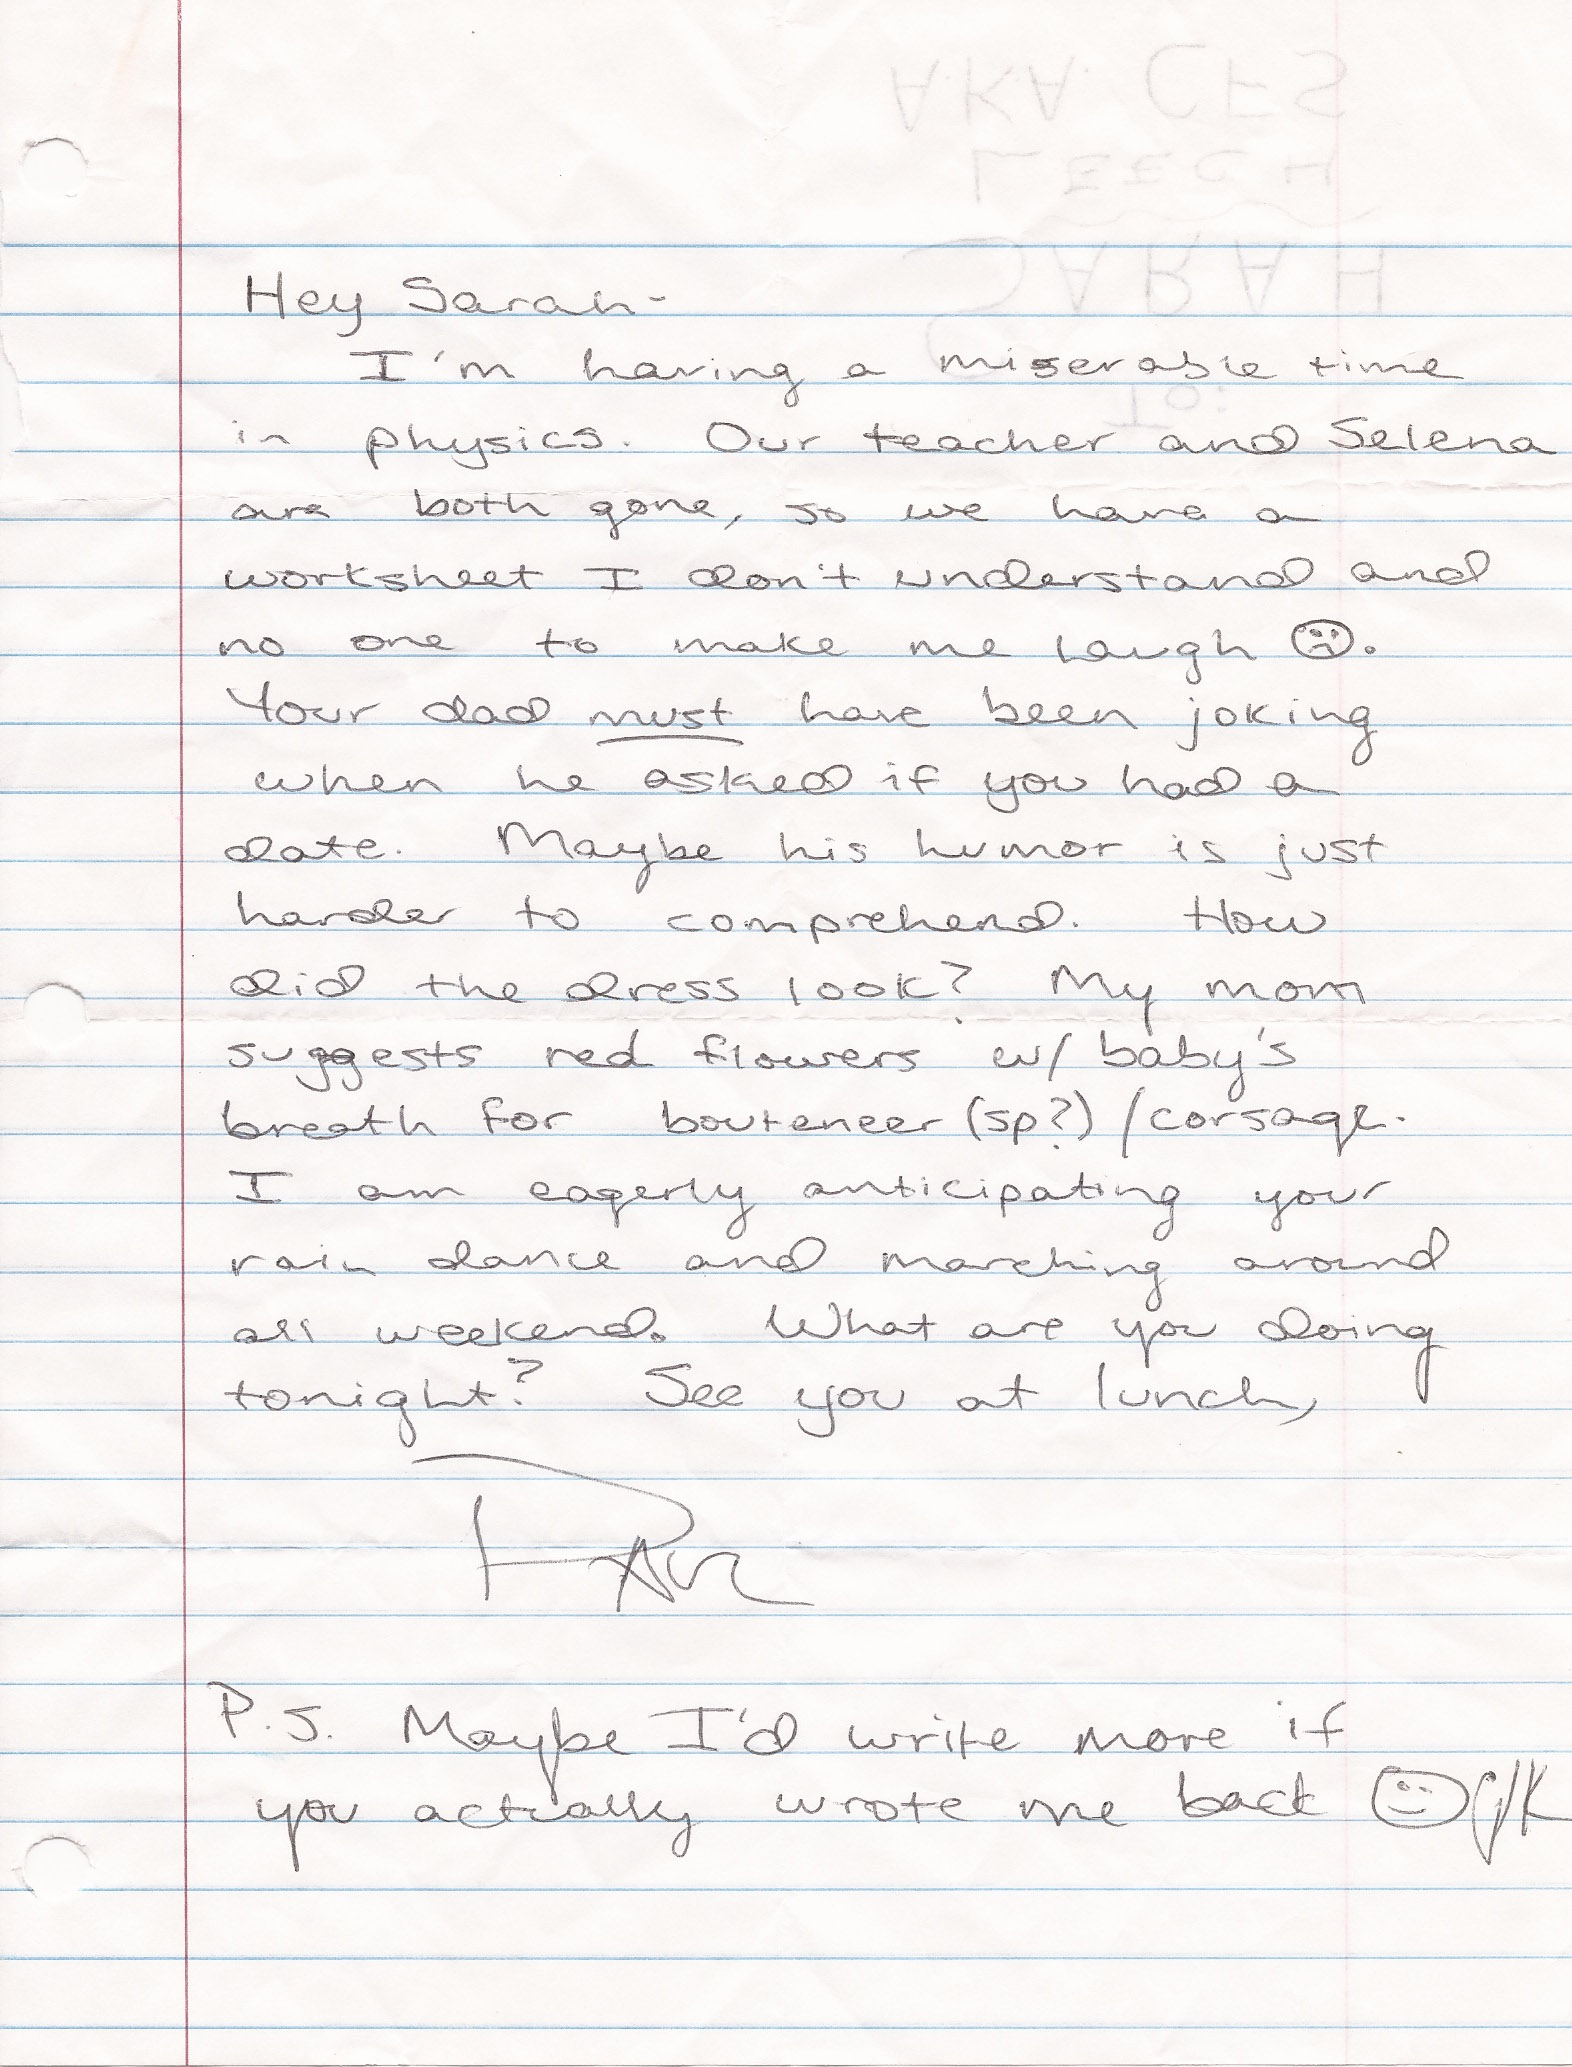 A.K.A. CFS
LEECH
SARAH
To:
Hey Sarah-
I'm having a miserable time
in physics. Our teacher and Selena
are both gone, so we have a
worksheet I don't understand and
no one to make me laugh ☹.
Your dad must have been joking
when he asked if you had a
date. Maybe his humor is just
harder to comprehend. How
did the dress look? My mom
suggests red flowers w/ baby's
breath for bouteneer (sp?) / corsage.
I am eagerly anticipating your
rain dance and marching around
all weekend. What are you doing
tonight? See you at lunch,
P.S. Maybe I'd write more if
you actually wrote me back ☺ (j/k